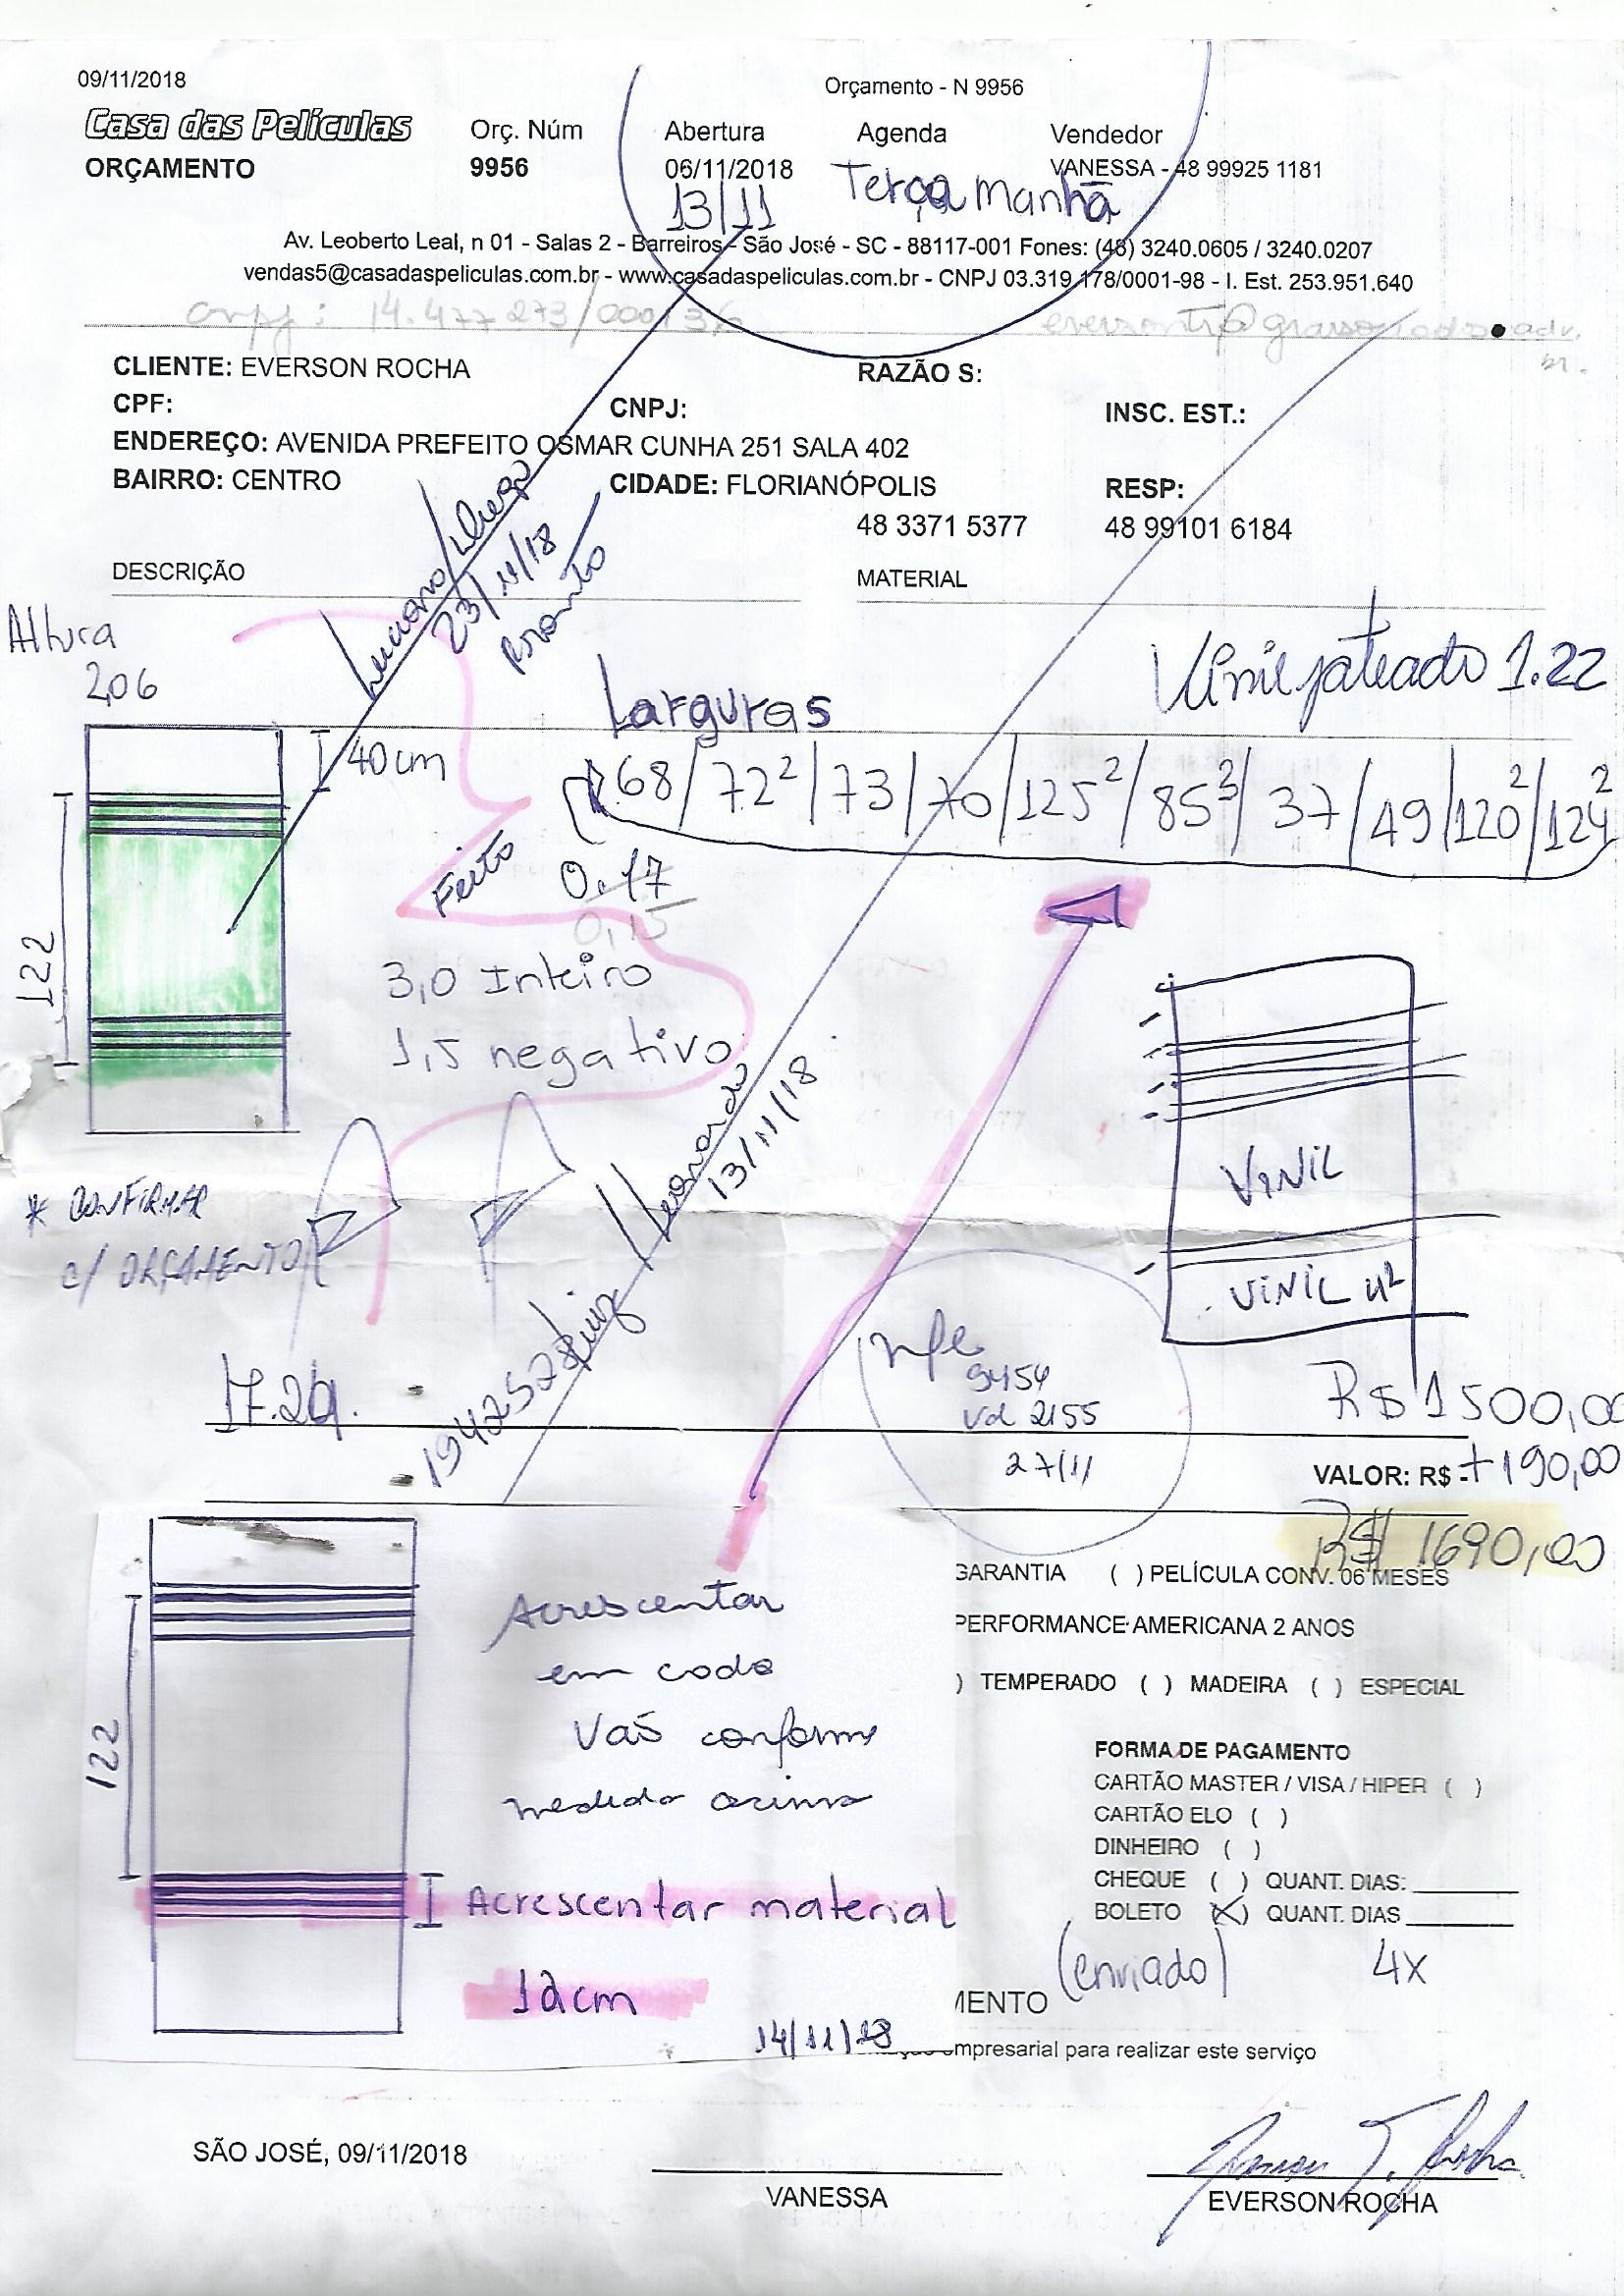 09/11/2018
Orçamento - N 9956
Casa das Películas
Orç. Núm Abertura Agenda Vendedor
ORÇAMENTO 9956 06/11/2018 VANESSA - 48 99925 1181
13/11 Terça Manhã
Av. Leoberto Leal, n 01 - Salas 2 - Barreiros - São José - SC - 88117-001 Fones: (48) 3240.0605 / 3240.0207
vendas5@casadaspeliculas.com.br - www.casadaspeliculas.com.br - CNPJ 03.319.178/0001-98 - I. Est. 253.951.640
cnpj: 14.477 273/0001
CLIENTE: EVERSON ROCHA RAZÃO S:
CPF: CNPJ: INSC. EST.:
ENDEREÇO: AVENIDA PREFEITO OSMAR CUNHA 251 SALA 402
BAIRRO: CENTRO CIDADE: FLORIANÓPOLIS RESP:
48 3371 5377 48 99101 6184
DESCRIÇÃO MATERIAL
Luciano/Diego
23/11/18
Pronto
Altura
2,06
Larguras
Vinil jateado 1.22
40cm
68/72²/73/70/125²/85³/37/49/120²/124²
Feito
0.17
0,15
122
3,0 Inteiro
1,5 negativo
Leonardo
13/11/18
VINIL
VINIL
* CONFIRMAR
C/ ORÇAMENTO
17.24.
19425278
nfe
9454
Vd 2155
27/11
R$ 1500,00
VALOR: R$ + 190,00
R$ 1690,00
GARANTIA ( ) PELÍCULA CONV. 06 MESES
PERFORMANCE AMERICANA 2 ANOS
) TEMPERADO ( ) MADEIRA ( ) ESPECIAL
122
Acrescentar
em cada
Vão conforme
medida acima
Acrescentar material
12cm
14/11/18
FORMA DE PAGAMENTO
CARTÃO MASTER / VISA / HIPER ( )
CARTÃO ELO ( )
DINHEIRO ( )
CHEQUE ( ) QUANT. DIAS:
BOLETO (X) QUANT. DIAS
(enviado) 4x
MENTO
empresarial para realizar este serviço
SÃO JOSÉ, 09/11/2018
VANESSA
EVERSON ROCHA